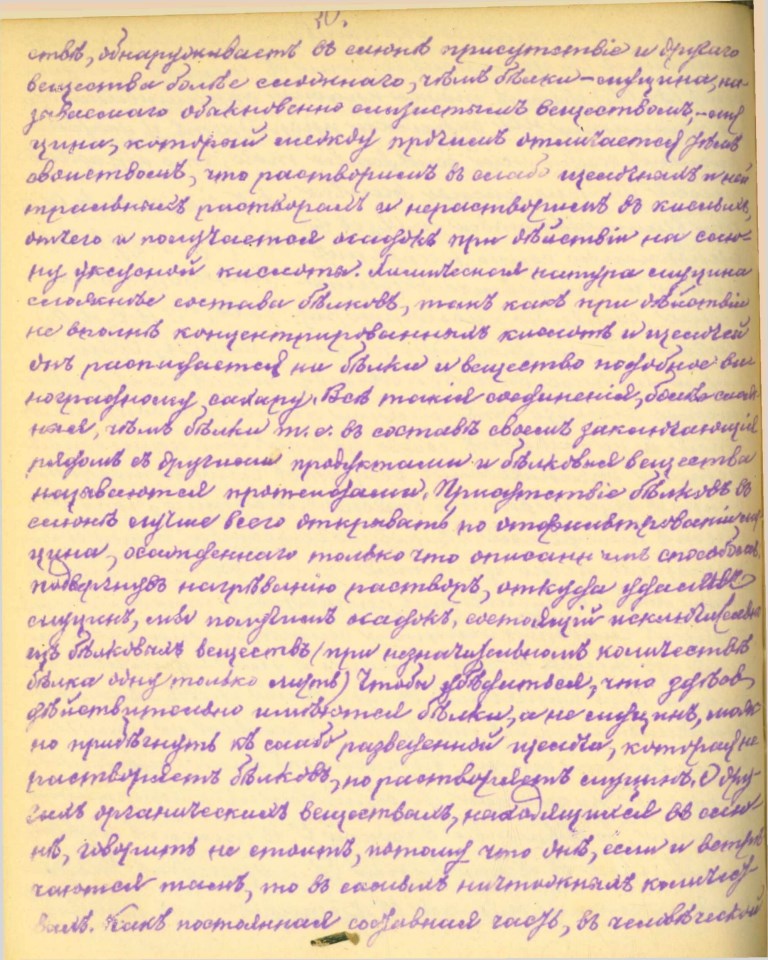 30.
ствѣ, обнаруживаетъ въ слюнѣ присутствіе и другаго
вещества болѣе сложнаго, чѣмъ бѣлки – муцина, на-
зываемаго обыкновенно слизистымъ веществомъ, – му
цина, который между прочимъ отличается тѣмъ
свойствомъ, что растворимъ въ слабо щелочныхъ и ней
тральныхъ растворахъ и нерастворимъ въ кислыхъ,
отчего и получается осадокъ при дѣйствіи на слю-
ну уксусной кислоты. Химическая натура муцина
сложнѣе состава бѣлковъ, такъ какъ при дѣйствіи
не вполнѣ концентрированныхъ кислотъ и щелочей
онъ распадается на бѣлки и вещество подобное ви
ноградному сахару. Всѣ такія соединенія, болѣе слож
ныя, чѣмъ бѣлки т. е. въ составѣ своемъ заключающія
рядомъ съ другими продуктами и бѣлковыя вещества
называются протеидами. Присутствіе бѣлковъ въ
слюнѣ лучше всего открывать по отфильтрованіи му
цина, осажденнаго только что описаннымъ способомъ,
подвергнувъ нагрѣванію растворъ, откуда удаленъ
муцинъ, мы получимъ осадокъ, состоящій исключительно
изъ бѣлковыхъ веществъ (при незначительномъ количествѣ
бѣлка одну только муть) Чтобы убѣдиться, что здѣсь
дѣйствительно имѣются бѣлки, а не муцинъ, мож
но прибѣгнуть къ слабо разведенной щелочи, которая не
растворяетъ бѣлковъ, но растворяетъ муцинъ. О дру-
гихъ органическихъ веществахъ, находящихся въ слю-
нѣ, говорить не стоитъ, потому что онѣ, если и встрѣ
чаются тамъ, то въ самыхъ ничтожныхъ количест
вахъ. Какъ постоянная составная часть, въ человѣческой